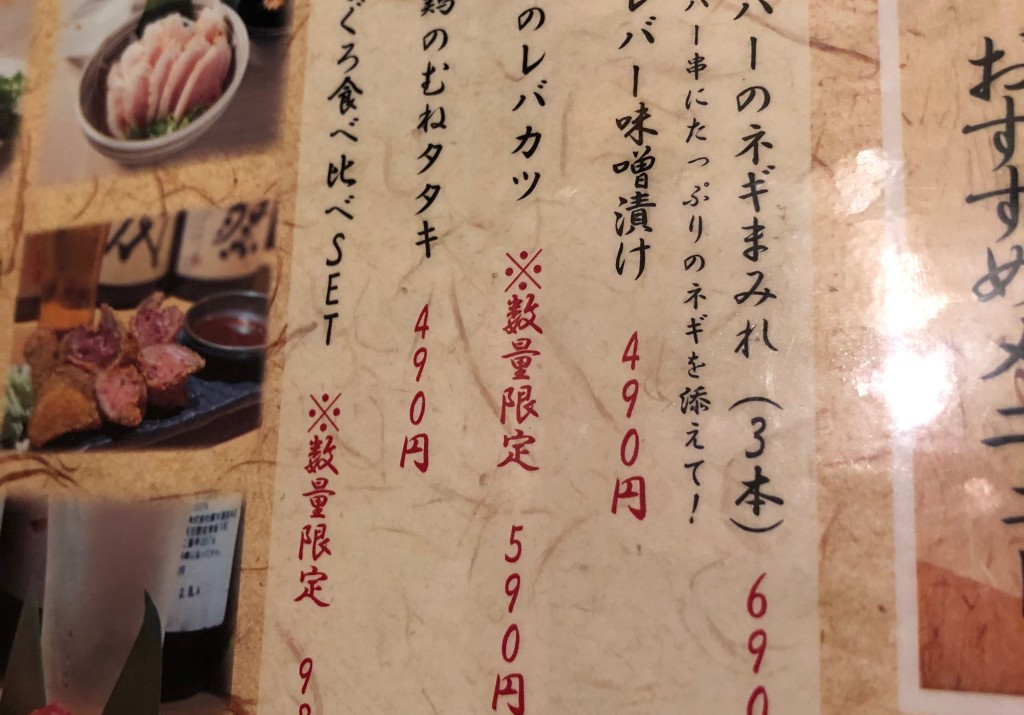 おすすめメニュー
バーのネギまみれ（3本） 690
バー串にたっぷりのネギを添えて！
レバー味噌漬け 490円
のレバカツ ※数量限定 590円
鶏のむねタタキ 490円
ぐろ食べ比べSET ※数量限定 98